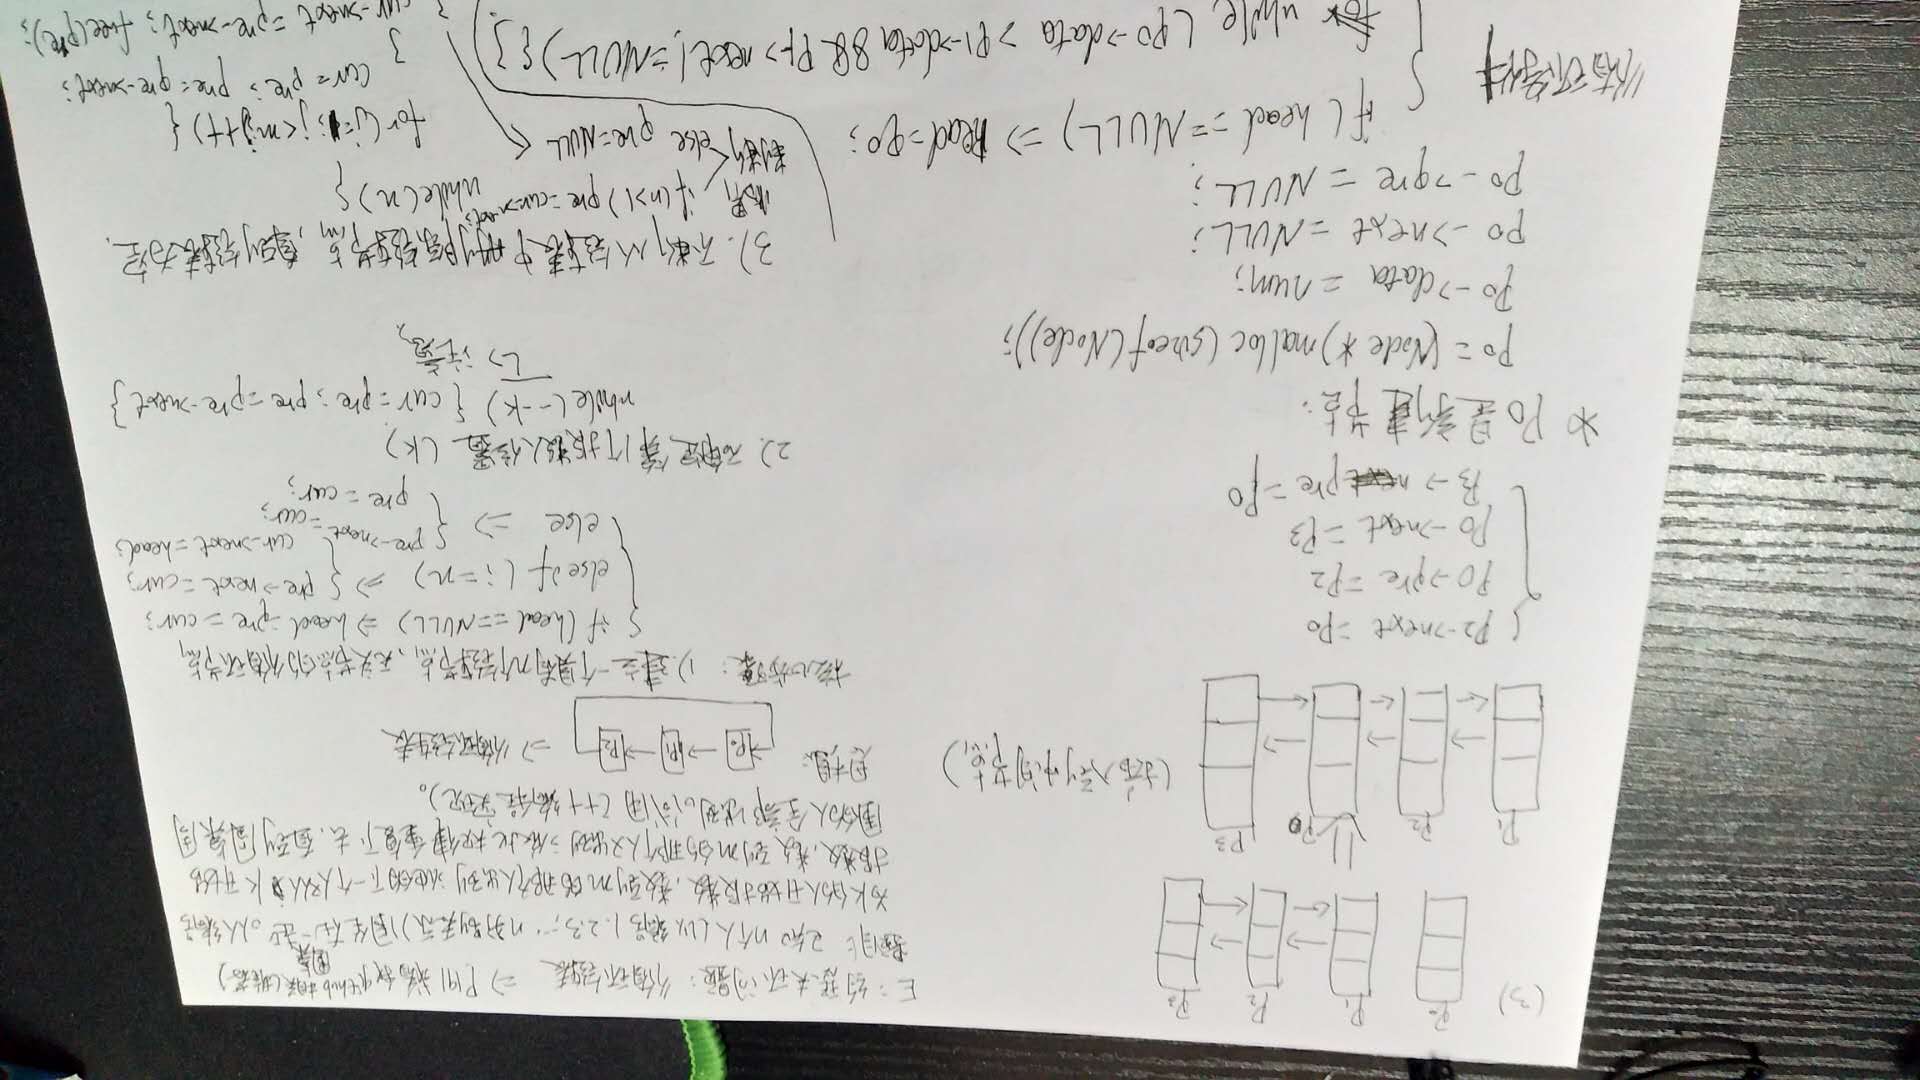 (3) P0 P1 P2 P3
P1 P2 P0 P3
(插入到中间节点)
P2->next=P0
P0->pre=P2
P0->next=P3
P3->pre=P0
* P0是新建节点:
P0=(Node *)malloc(sizeof(Node));
P0->data =num;
P0->next =NULL;
P0->pre =NULL;
if(head==NULL) => head=P0;
循环条件
while (P0->data >P1->data && P1->next!=NULL){}
E:约瑟夫环问题:循环链表 => P191 或看我github相关(推荐)
题目: 已知n个人(以编号1.2.3,…n分别表示)围坐在一起。从编号
圆桌
为K的人开始报数,数到m的那个人出列;他的下一个人又从K开始
报数,数到m的那个人又出列;依此规律重复下去,直到圆桌周
围的人全部出列。(试用C++编程实现)。
思想: ->P0->P1->P2 => 循环链表
核心步骤: 1).建立一个具有n个链节点、无头节点的循环节点
if(head==NULL) => head=pre=cur;
else if (i=n) => { pre->next=cur;
cur->next=head;
else => { pre->next=cur;
pre=cur;
2). 确定第1个报数人位置(K)
while(--k) {cur=pre; pre=pre->next}
注意
3). 不断从链表中删除链节点,直到链表为空.
临界判断 if(n>1) pre=cur->next;
else pre=NULL
while(n){
for(j=1; j<m;j++){
cur=pre; pre=pre->next;
}
cur->next=pre->next; free(pre);